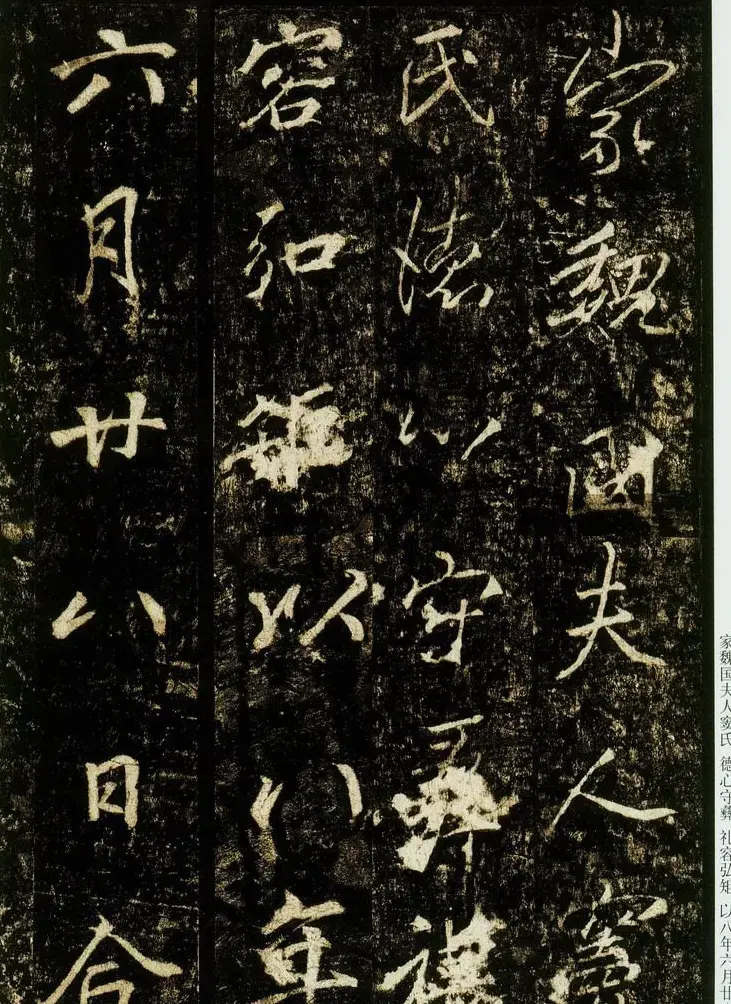 家魏國夫人竇
氏德心守彝禮
容弘矩以八年
六月廿八日合
家魏国夫人窦氏 德心守彝 礼容弘矩 以八年六月廿